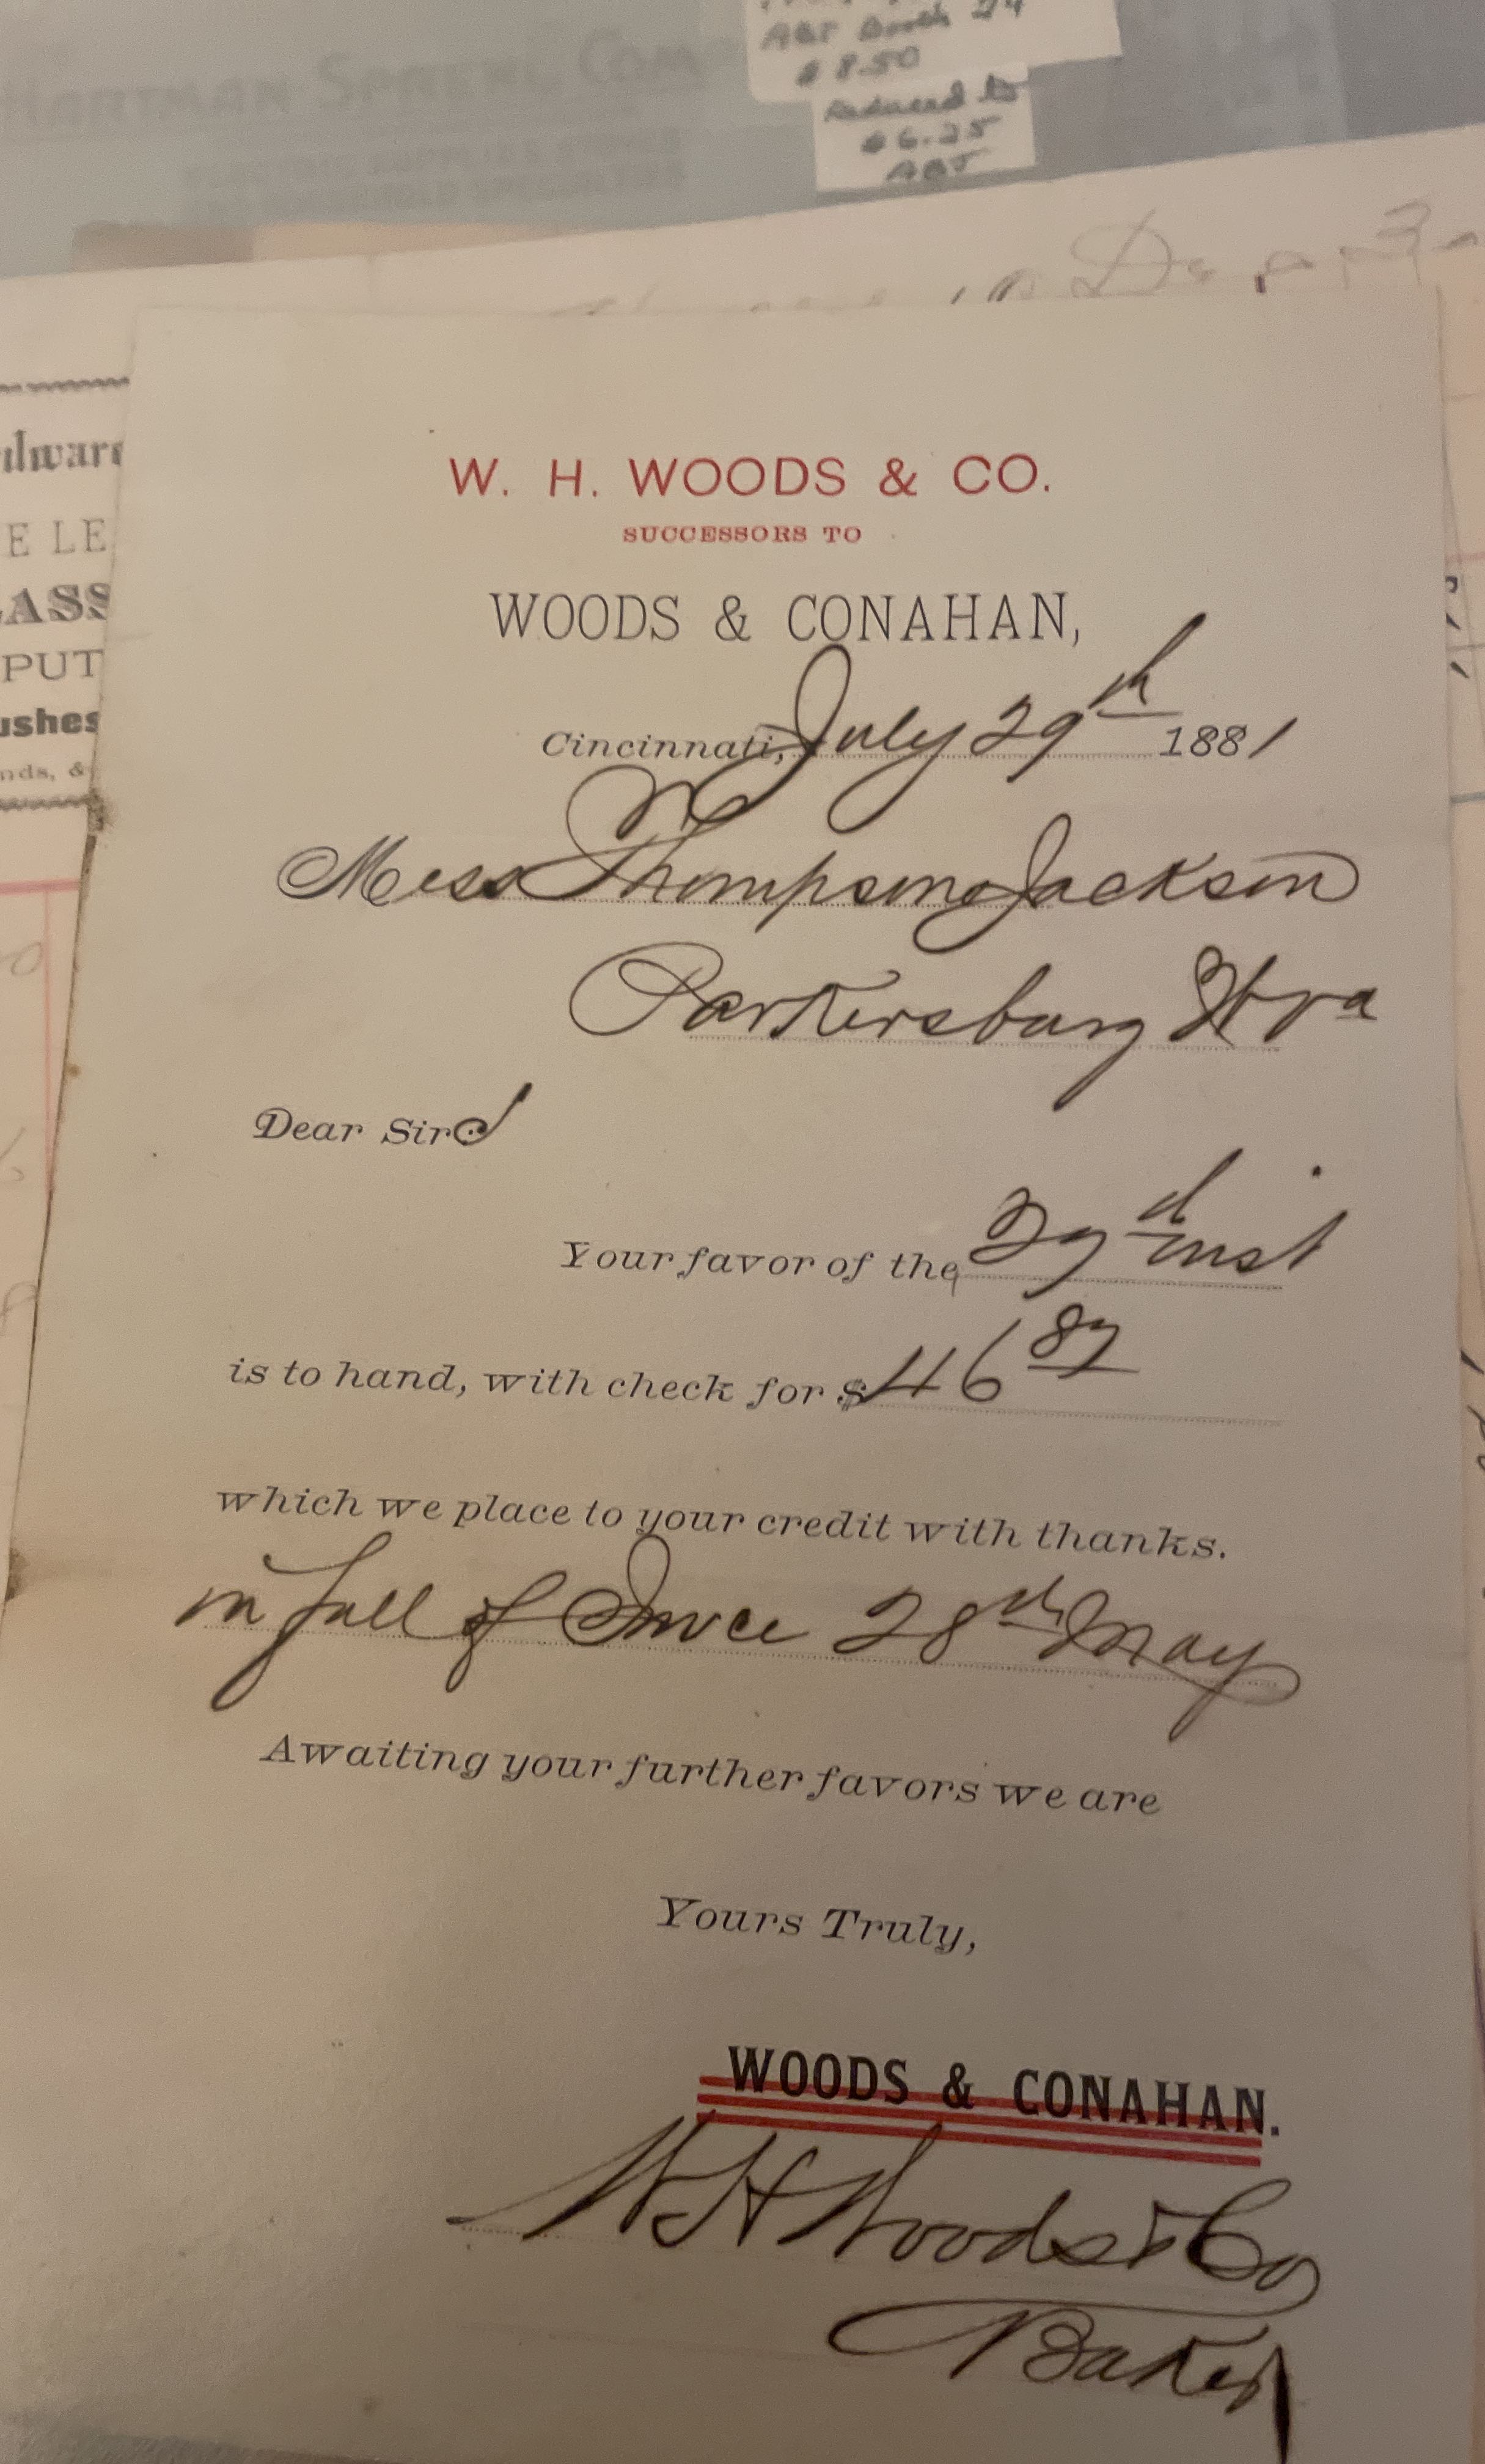 HARTMAN SPREHL COM
ABT Booth 24
$8.50
Reduced to
$6.25
ABT
dware
E LE
LASS
PUT
ushes
nds, &
W. H. WOODS & CO.
SUCCESSORS TO
WOODS & CONAHAN,
Cincinnati, July 29th 1881
Mess Thompson & Jackson
Parkersburg W va
Dear Sirs
Your favor of the 27th inst
is to hand, with check for $46 87
which we place to your credit with thanks.
in full of Invce 28th May
Awaiting your further favors we are
Yours Truly,
WOODS & CONAHAN.
W H Woods & Co
Baker